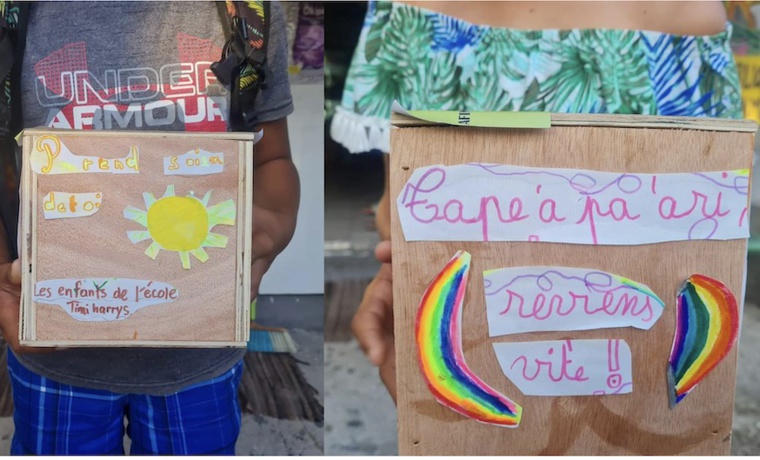 UNDER
ARMOUR
Prend soin
de toi
Les enfants de l'école
Timi harrys
Tape'a pa'ari,
revrens
vite !